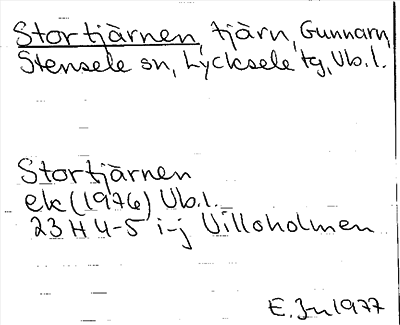 Stortjärnen, tjärn, Gunnarn,
Stensele sn, Lycksele tg, Vb.l.
Stortjärnen
ek (1976) Vb.l.
23 H 4-5 i-j Villoholmen
E. Jn 1977